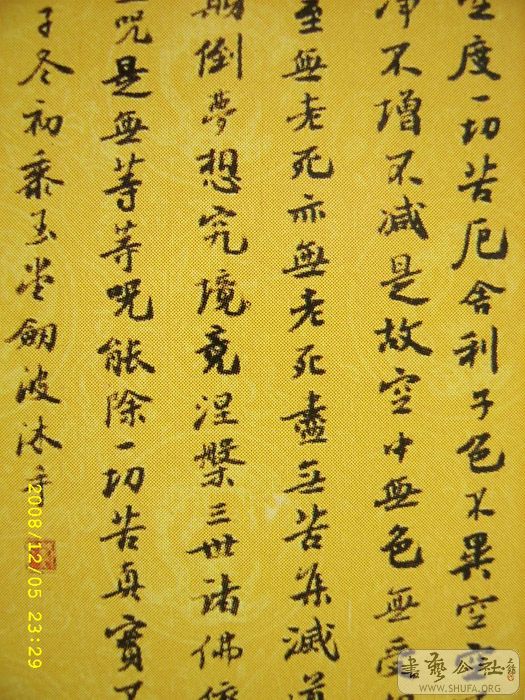 度一切苦厄舍利子色不異空空
淨不增不减是故空中無色無受
至無老死亦無老死盡无苦集滅道
倒夢想究境竟涅槃三世諸佛依
呪是無等等呪能除一切苦真實不
子冬初玉堂劒波沐手
2008/12/05 23:29
書藝公社
WWW.SHUFA.ORG